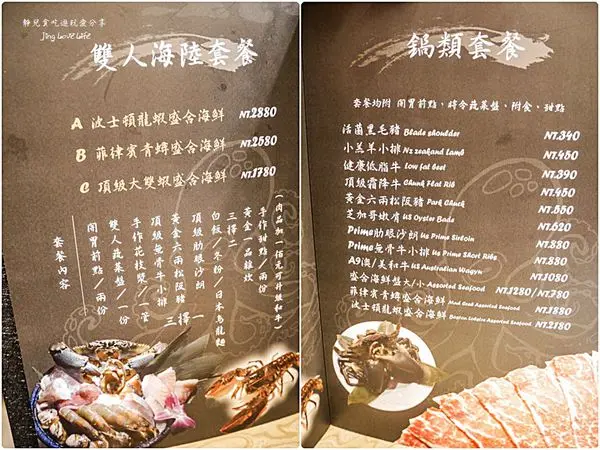 靜兒貪吃遊玩愛分享
Jing Love Life
雙人海陸套餐
A 波士頓龍蝦盛合海鮮 NT.2880
B 菲律賓青蟳盛合海鮮 NT.2580
C 頂級大雙蝦盛合海鮮 NT.1780
套餐內容
開胃前點/兩份
雙人蔬菜盤/一份
手作花枝漿/一管
頂級無骨牛小排
黃金六兩松阪豬
頂級肋眼沙朗
三擇一
白飯/冬粉/日本烏龍麵
三擇二
黃金一品雜炊
手作甜點/兩份
(肉品加一佰元可升級和牛)
鍋類套餐
套餐均附 開胃前點、時令蔬菜盤、附食、甜點
活菌黑毛豬 Blade shoulder NT.340
小羔羊小排 Nz zeakand lamb NT.450
健康低脂牛 Low fat beef NT.390
頂級霜降牛 Chunk Flat Rib NT.450
黃金六兩松阪豬 Pork Chuck NT.550
芝加哥嫩肩 US Oyster Bade NT.520
Prime肋眼沙朗 US Prime Sirloin NT.580
Prime無骨牛小排 US Prime Short Ribs NT.880
A9澳/美和牛 US Australian Wagyu NT.1080
盛合海鮮盤大/小 Assorted Seafood NT.1280/780
菲律賓青蟳盛合海鮮 Mud Crab Assorted Seafood NT.1880
波士頓龍蝦盛合海鮮 Boston Lobster Assorted Seafood NT.2180